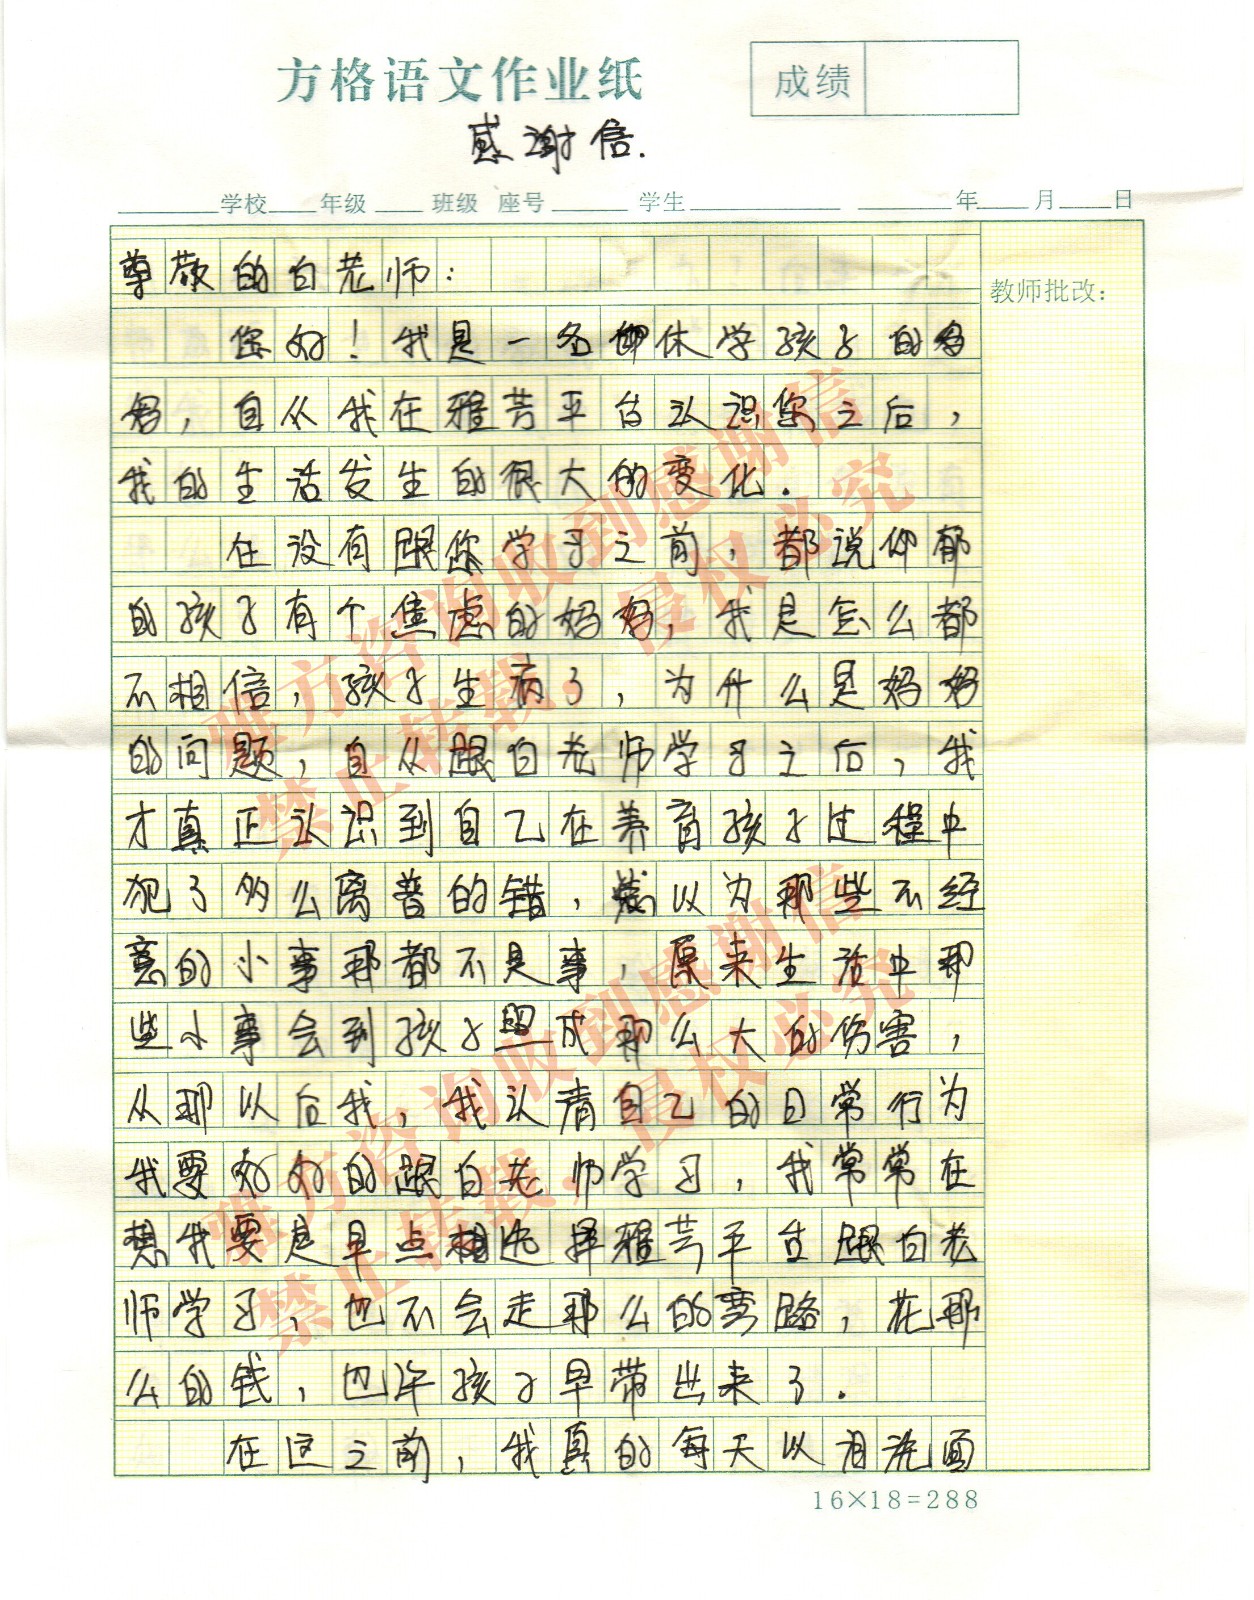 方格语文作业纸
成绩
感谢信.
学校 年级 班级 座号 学生 年 月 日
教师批改:
尊敬的白老师:
您好!我是一名休学孩子的妈
妈,自从我在雅芳平台认识您之后,
我的生活发生的很大的变化.
在没有跟您学习之前,都说仰郁
的孩子有个焦虑的妈妈,我是怎么都
不相信,孩子生病了,为什么是妈妈
的问题,自从跟白老师学习之后,我
才真正认识到自己在养育孩子过程中
犯了多么离普的错,总以为那些不经
意的小事那都不是事,原来生活中那
些小事会到孩子照成那么大的伤害,
从那以后我,我认清自己的日常行为
我要好好的跟白老师学习,我常常在
想我要是早点相选择雅芳平台跟白老
师学习,也不会走那么的弯路,花那
么的钱,也许孩子早带出来了.
在这之前,我真的每天以泪洗面
16×18=288
雅方咨询收到感谢信
禁止转载,侵权必究
雅方咨询收到感谢信
禁止转载,侵权必究